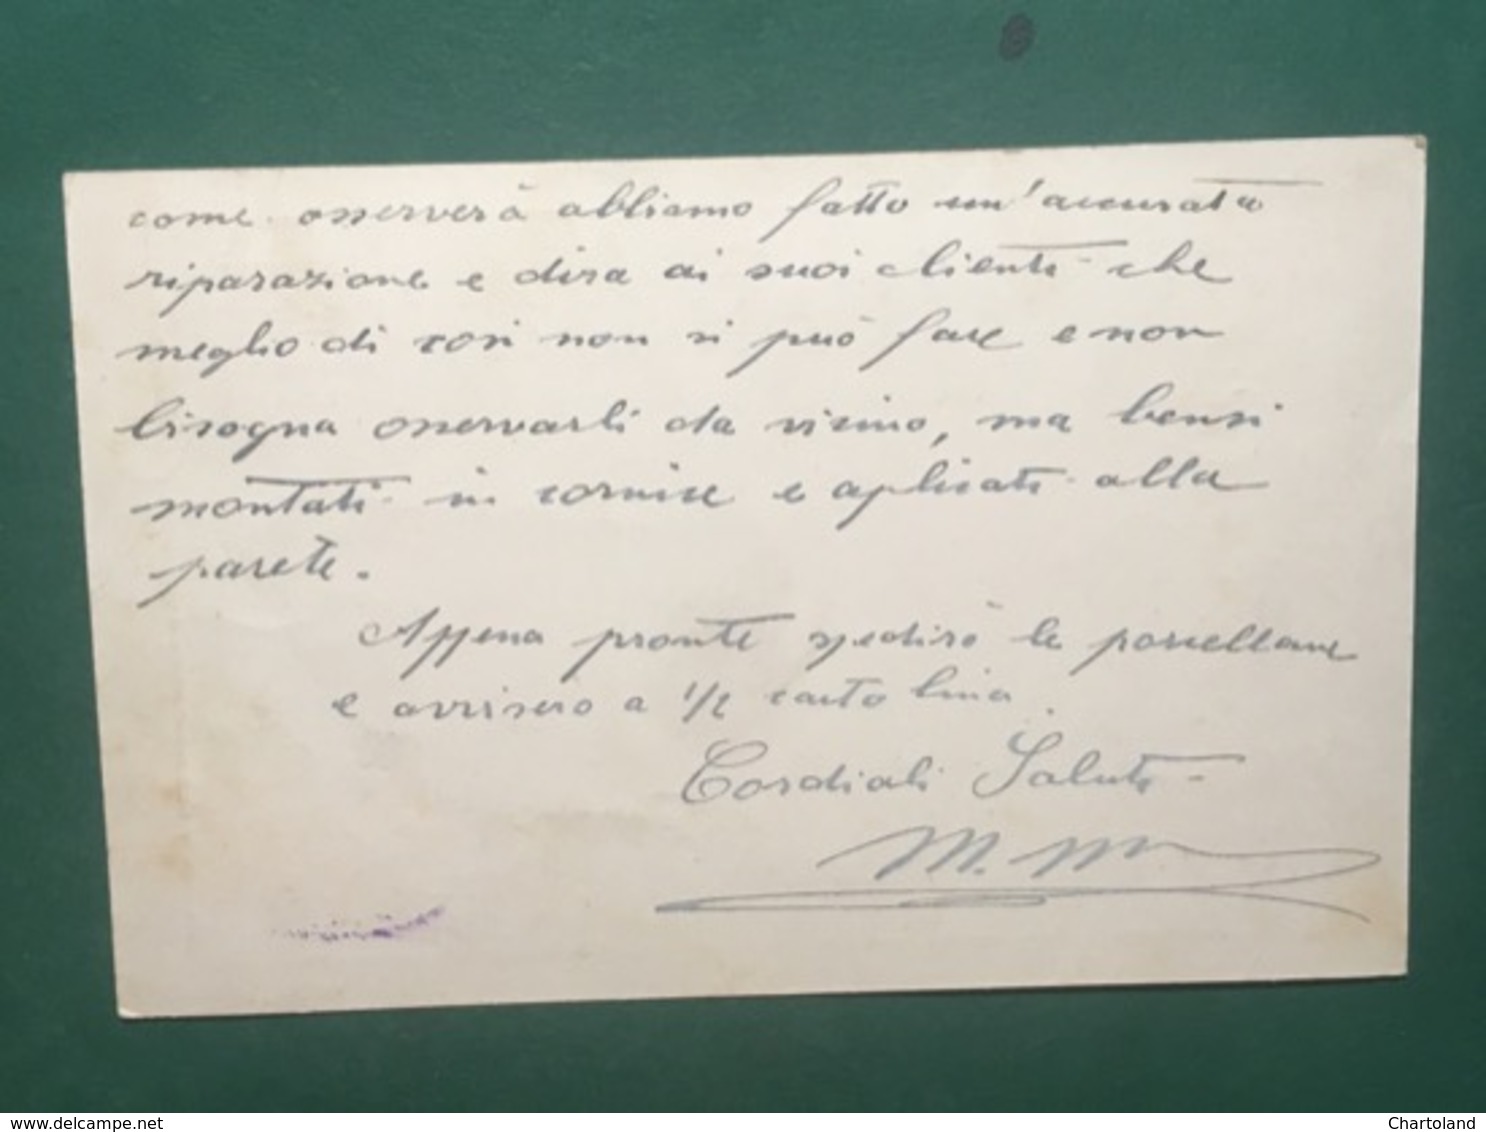 come osserverà abbiamo fatto un'accurata
riparazione e dira ai suoi clienti che
meglio di così non si può fare e non
bisogna osservarli da vicino, ma bensi
montati in cornice e aplicati alla
parete.
Appena pronte spedirò le porcellane
e avviserò a 1/2 cartolina.
Cordiali Saluti
M.
www.delcampe.net
Chartoland